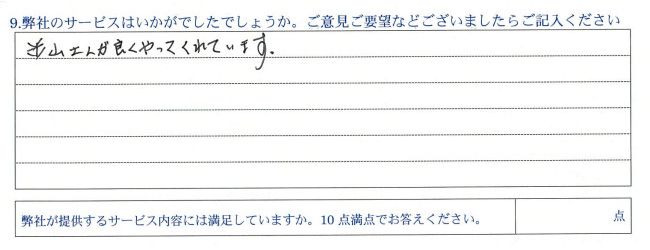 9.弊社のサービスはいかがでしたでしょうか。ご意見ご要望などございましたらご記入ください
山さんが良くやってくれています。
弊社が提供するサービス内容には満足していますか。10点満点でお答えください。
点